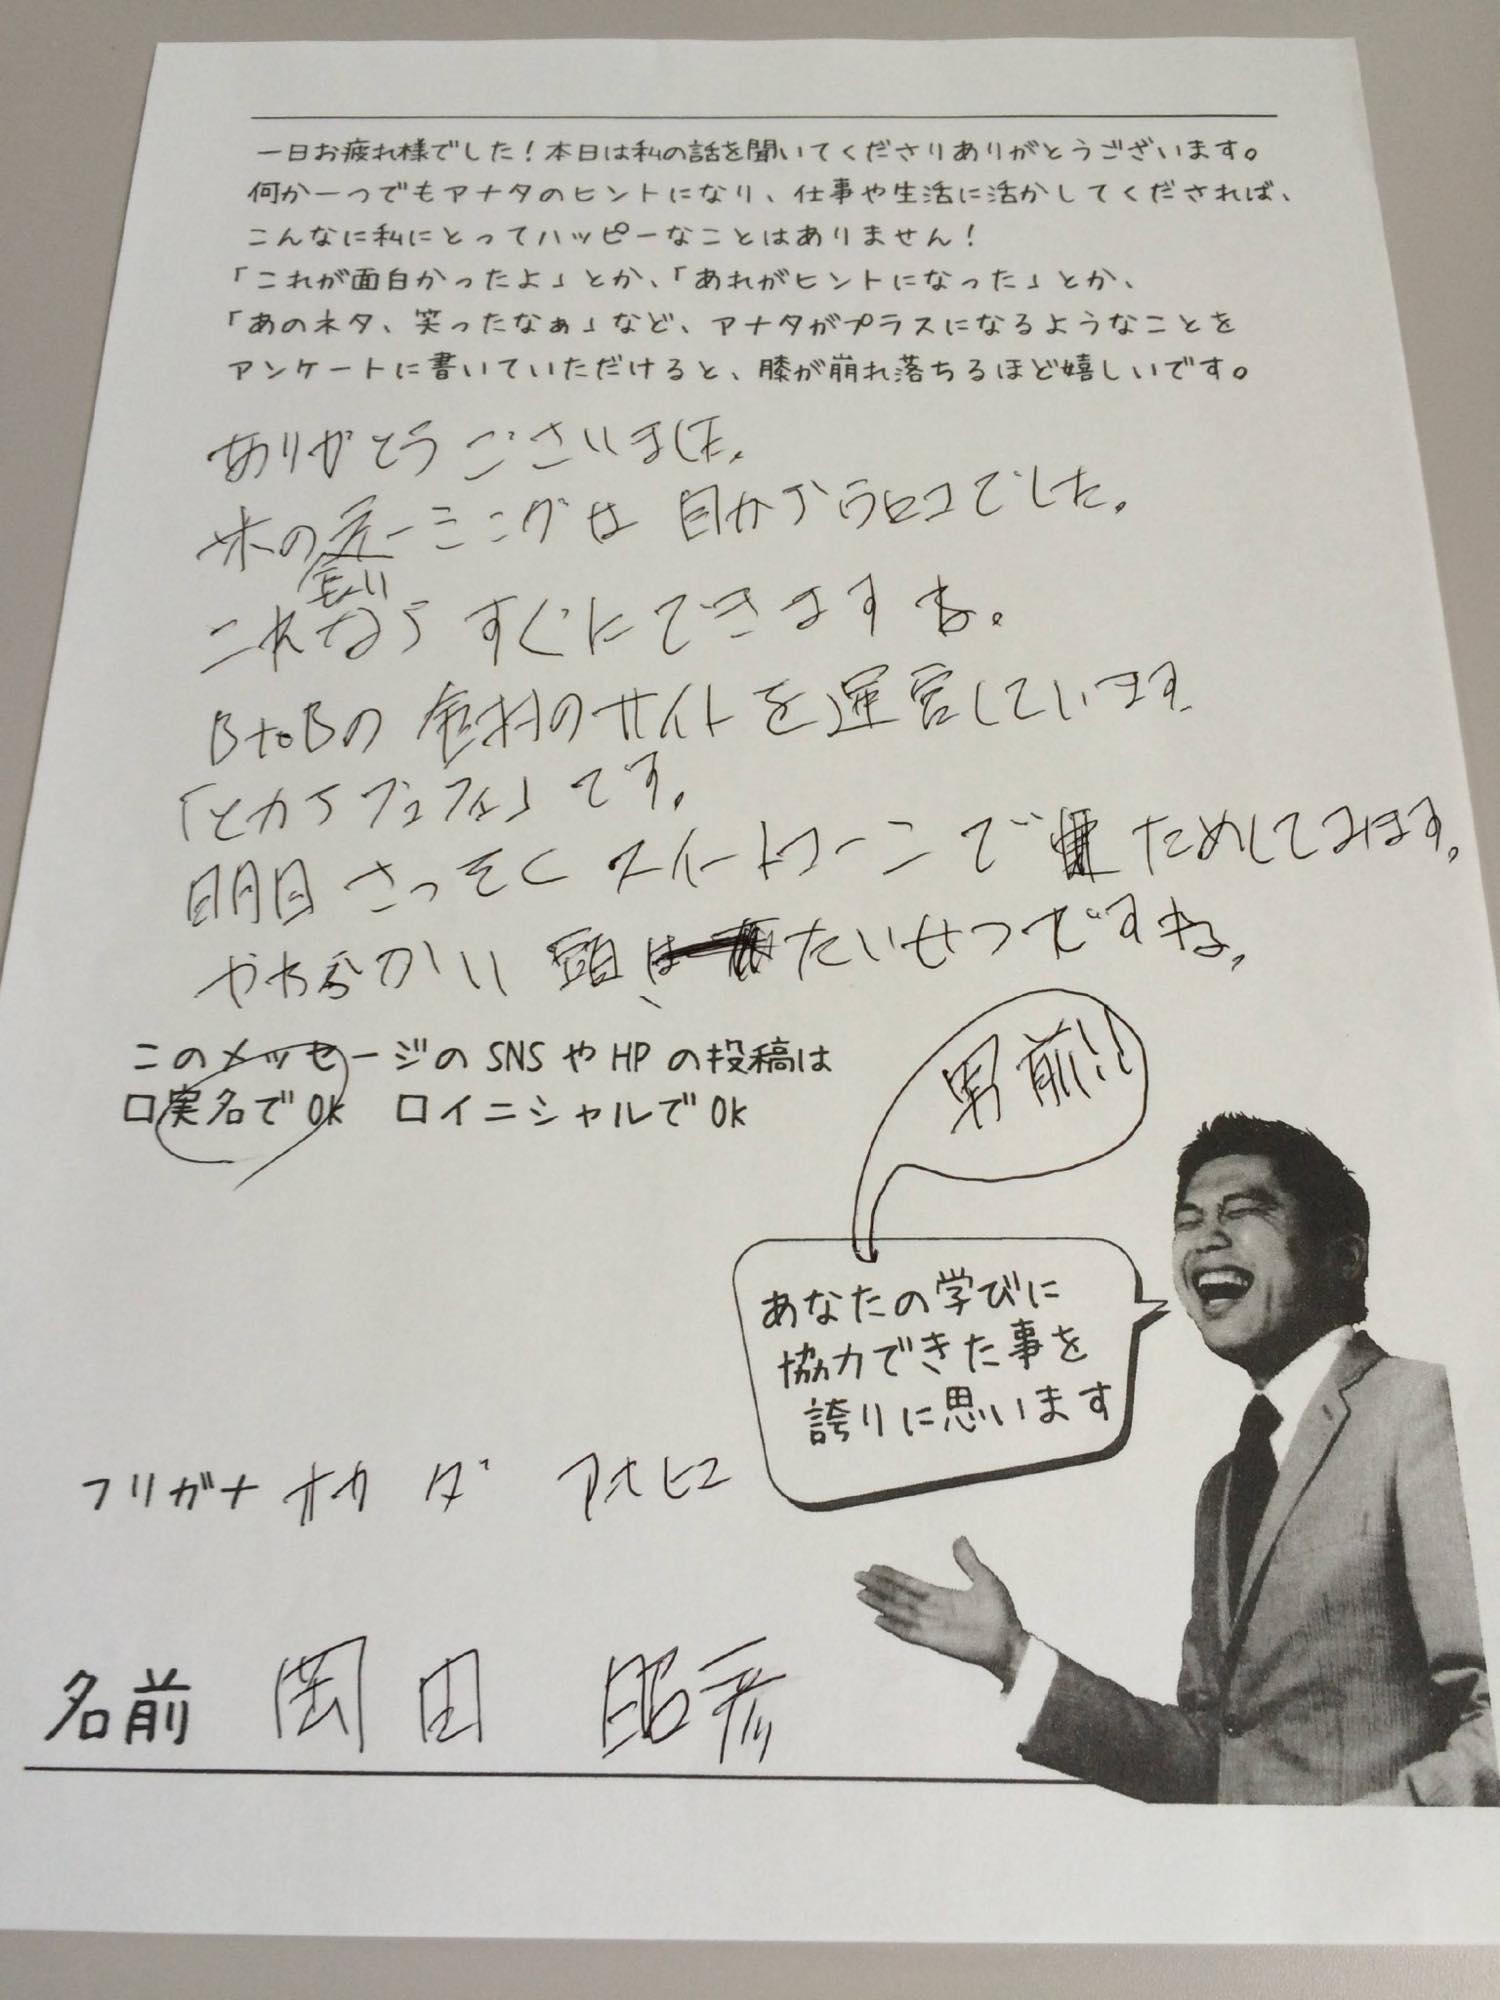 一日お疲れ様でした！本日は私の話を聞いてくださりありがとうございます。
何か一つでもアナタのヒントになり、仕事や生活に活かしてくだされば、
こんなに私にとってハッピーなことはありません！
「これが面白かったよ」とか、「あれがヒントになった」とか、
「あのネタ、笑ったなぁ」など、アナタがプラスになるようなことを
アンケートに書いていただけると、膝が崩れ落ちるほど嬉しいです。
ありがとうございました。
ーミングは目からウロコでした。
これならすぐにできますね。
BtoBの食材のサイトを運営しています
「とカチブュフェ」です。
明日さっそくスイートコーンでためしてみます。
やわらかい頭は、たいせつですね。
このメッセージのSNSやHPの投稿は
□実名でOK □イニシャルでOK
男前!!
あなたの学びに
協力できた事を
誇りに思います
フリガナ オカダ アキヒコ
名前 岡田 昭彦